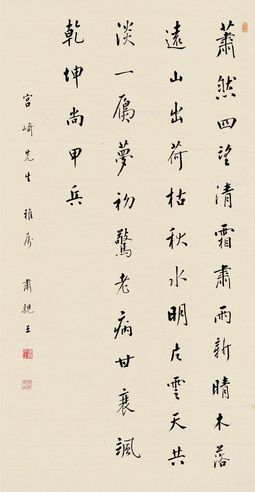 蕭然四望清霜肅雨新晴木落
遠山出荷枯秋水明片雲天共
淡一鴈夢初驚老病甘衰颯
乾坤尚甲兵
宮崎先生雅屬 肅親王